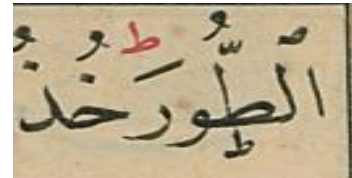 ٱلطُّورَ ؕ خُذُ